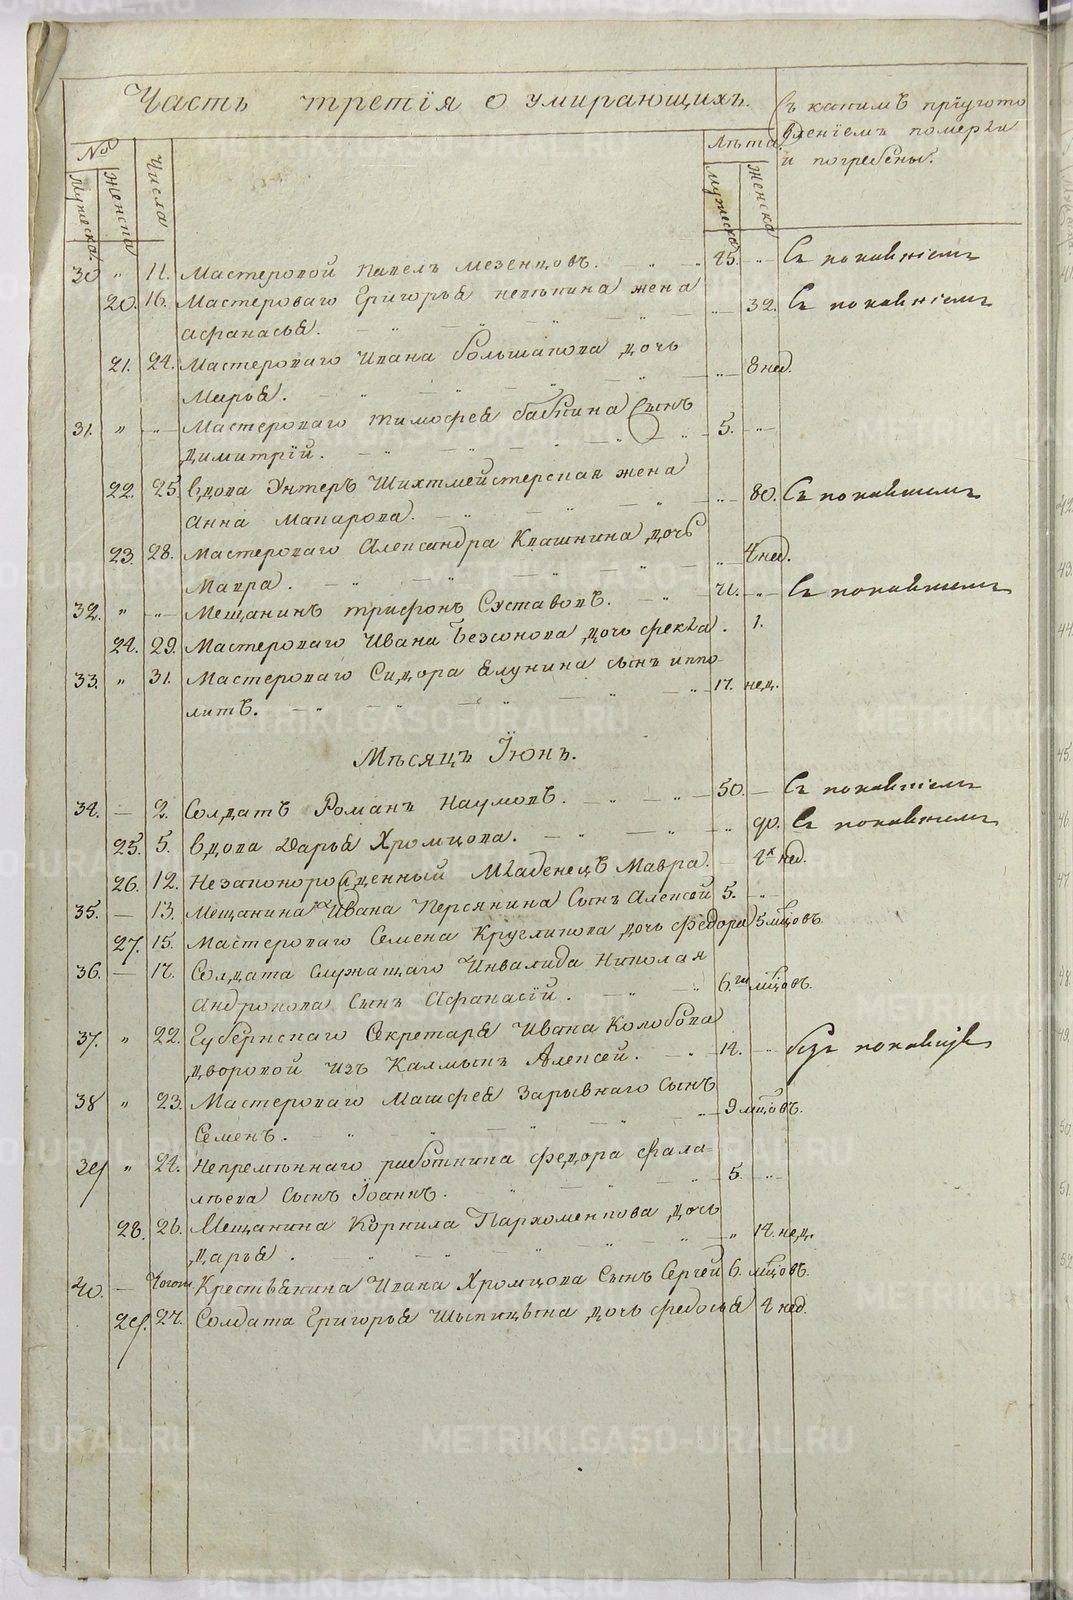 Часть третїя о умирающихъ.
Съ какимъ пріугото
вленіемъ померли
и погребены.
№
Лѣта
Мужеска.
Женска
Числа
Мужеска
Женска
30 " 11. Мастеровой Павелъ Мезенцовъ. 45. Съ покаяніемъ
20. 16. Мастероваго Григорья жена 32. Съ покаяніемъ
Афанасья.
21. 24. Мастероваго Ивана Большакова дочь 8 нед.
Марья.
31. " Мастероваго Тимофея Бабкина Сынъ 5.
Димитрїй.
22. 25. Вдова Унтеръ Шихтмейстерская жена 80. Съ покаяніемъ
Анна Макарова.
23. 28. Мастероваго Александра Квашнина дочь 4 нед.
Мавра.
32. " Мещанинъ Трифонъ Суставовъ. 71. Съ покаяніемъ
24. 29. Мастероваго Ивана Безсонова дочь Фекла. 1.
33. " 31. Мастероваго Сидора Ялунина сынъ иппо-
литъ. 17. нед.
Мѣсяцъ Їюнь.
34. 2. Солдатъ Романъ Наумовъ. 50. Съ покаяніемъ
25. 5. Вдова Дарья Хромцова. 90. Съ покаяніемъ
26. 12. Незаконорожденный Младенецъ Мавра. 4х нед.
35. 13. Мещанина Ивана Персянина Сынъ Алексей 5.
27. 15. Мастероваго Семена Кругликова дочь Федора 5 мцовъ
36. 17. Солдата служащаго Инвалида Николая
Андронова Сынъ Афанасїй. 6.ти мцовъ.
37. " 22. Губернскаго Секретаря Ивана Колобова
дворовой изъ Калмыкъ Алексей. 14. безъ покаянія
38 " 23. Мастероваго Матфея Зарывнаго Сынъ
Семенъ. 9 мцовъ.
39 " 24. Непремѣннаго работника Федора Фала-
лѣева Сынъ Їоаннъ. 5.
28. 26. Мещанина Корнила Пархоменкова дочь
Дарья. 14. нед.
40. Тогож Крестьянина Ивана Хромцова Сынъ Сергей 6. мцовъ.
29. 27. Солдата Григорья дочь Федосья 4 нед.
METRIKI.GASO-URAL.RU